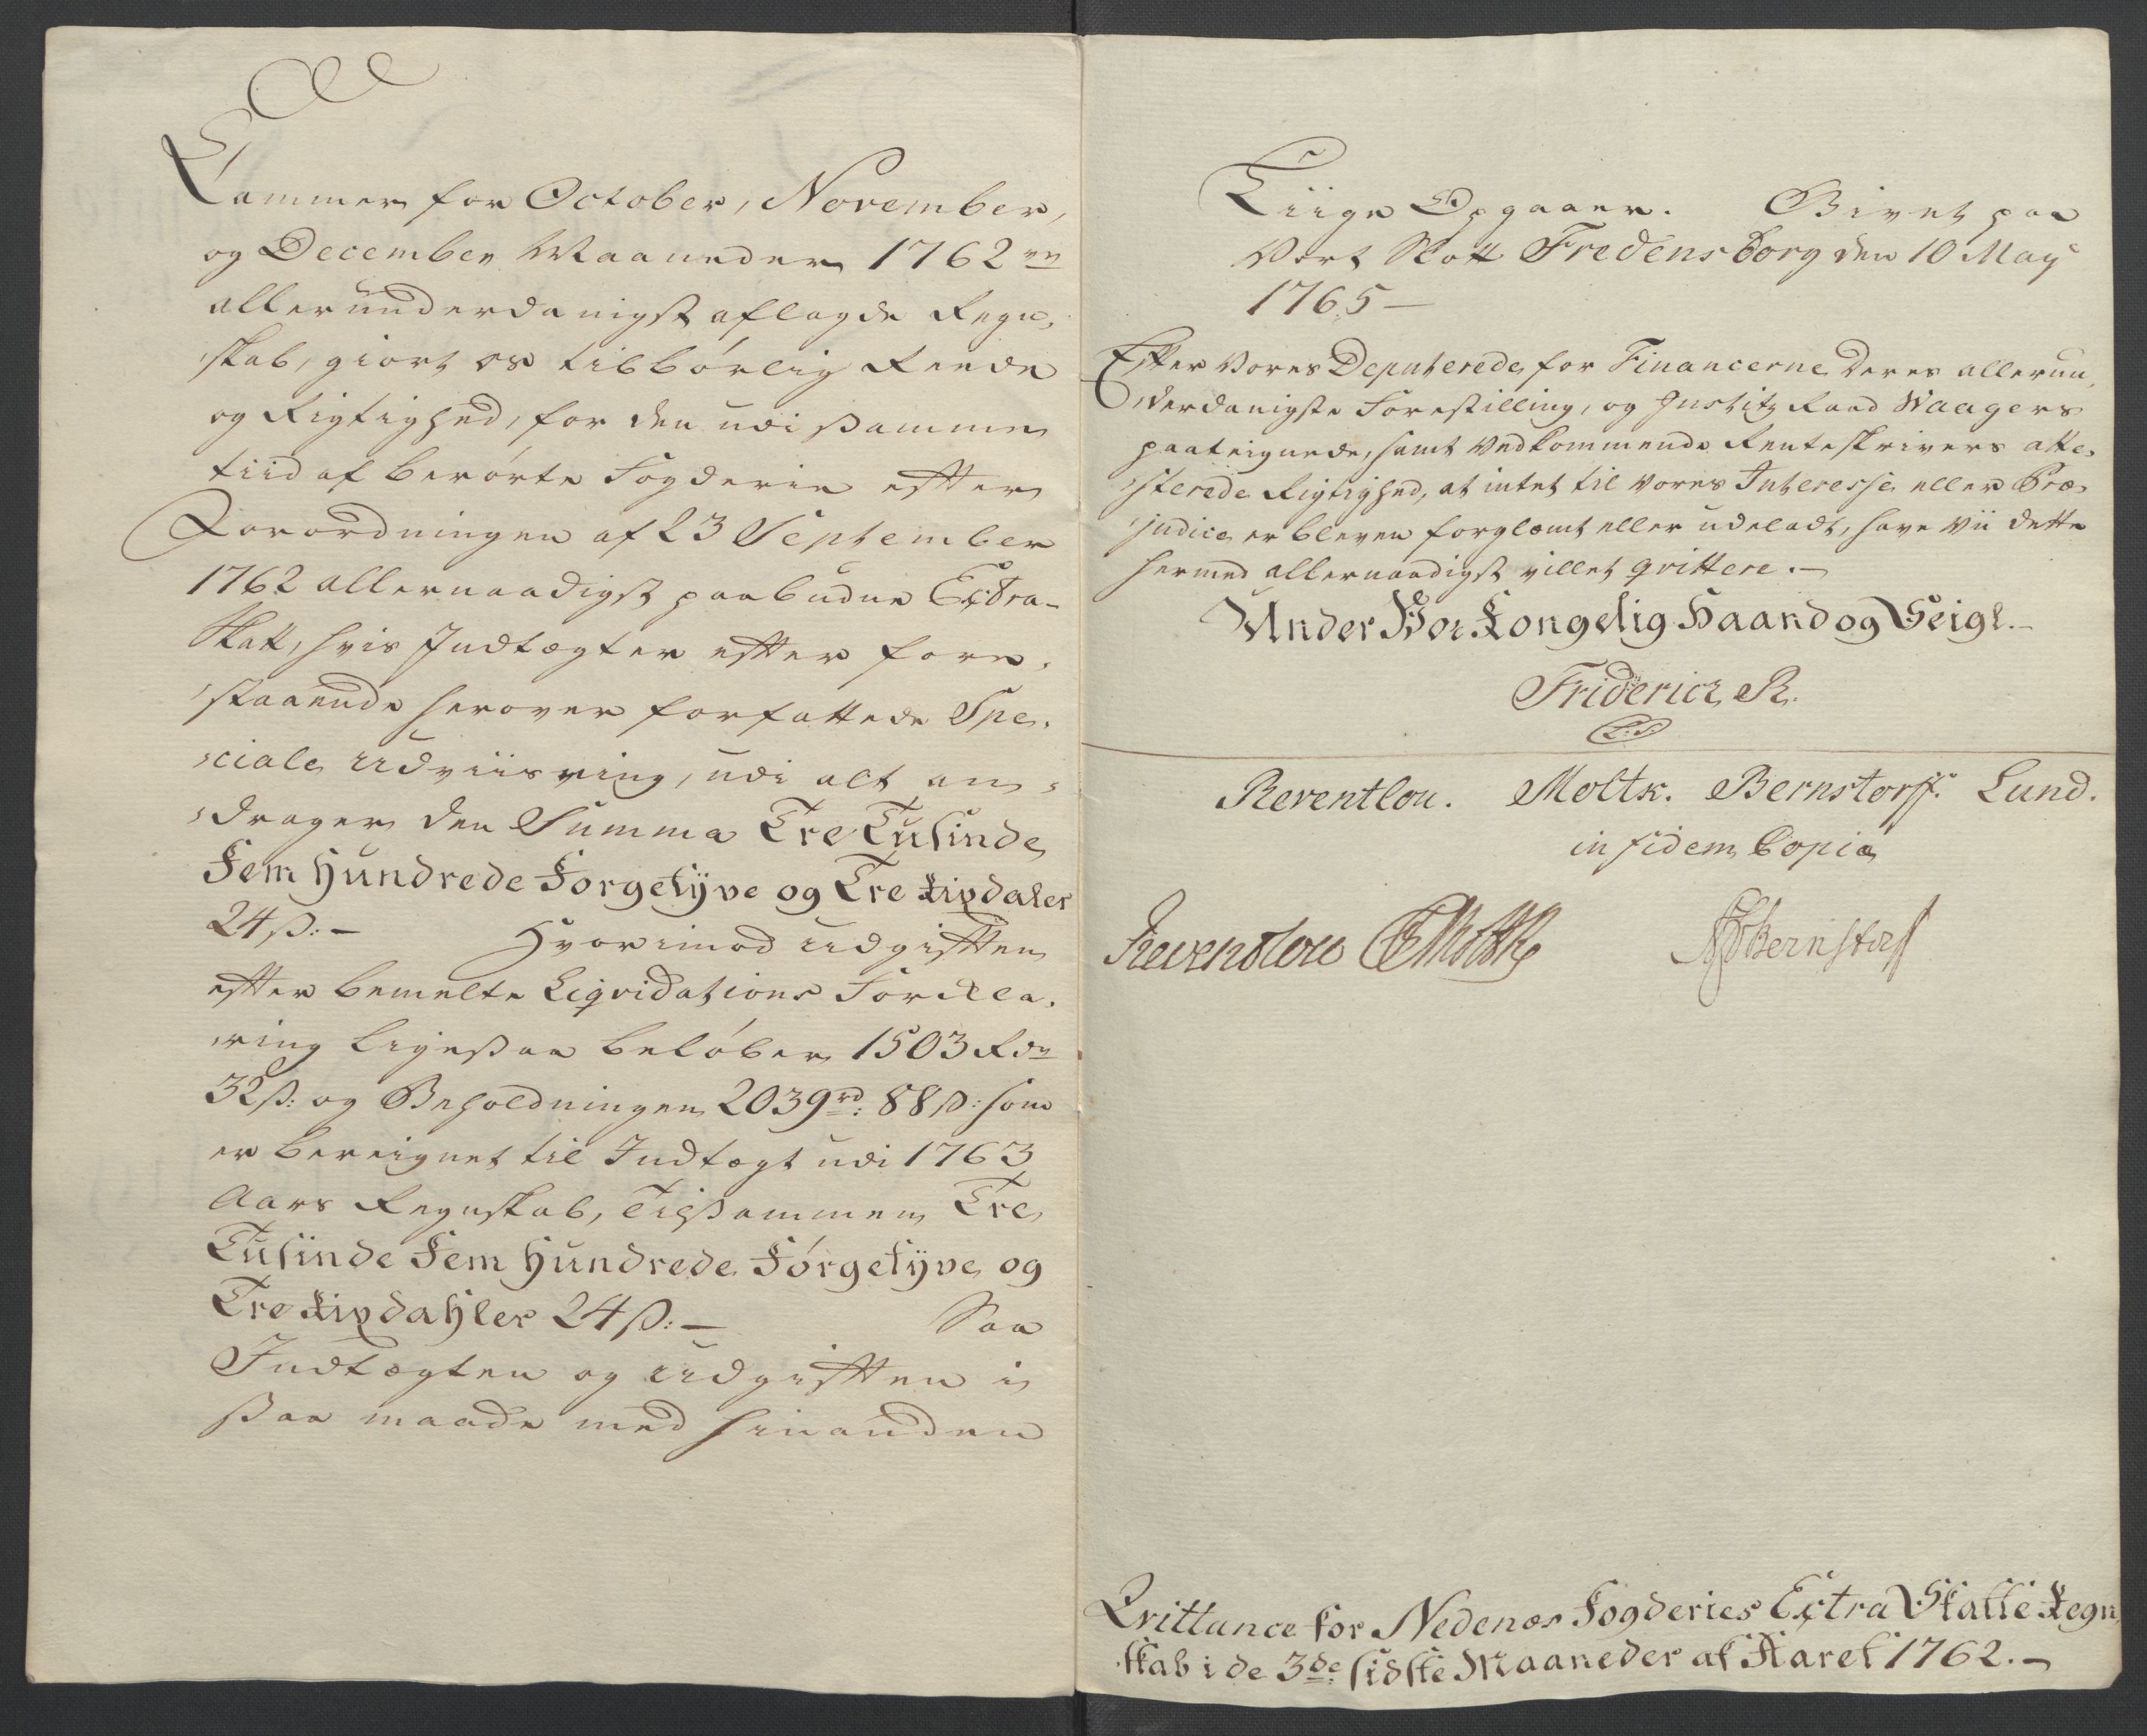 Cammer for October, November,
og December Maaneder 1762 
allerunderdanigst aflagde Regn-
skab, giort os tilbørlig Reede
og Rigtighed, for den udi samme
tiid af berørte Fogderie efter
Forordningen af 23 September
1762 allernaadigst paabudne Extra-
Skatt, hvis Indtægter efter foren-
staaende herover forfattede Spe-
ciale Udviisning, udi alt an-
drager den Summa Tre Tusinde
Fem Hundrede Forgetÿve og Tre Rixdaler
24 ß:– Hvorimod Udgiften
efter bemelte Liqvidations Forkla-
ring ligesaa beløber 1503 Rdr
32 ß: og Beholdningen 2039 rd: 88 ß: som
er beregnet til Indtægt udi 1763
Aars Regnskab, tilsammen Tre
Tusinde Fem Hundrede Førgetÿve og
Tre Rixdahler 24 ß:– Saa
Indtægten og Udgiften i
saa maade med hinanden
Liige Opgaaer. Givet paa
Vort Slott Fredensborg den 10 May
1765–
Efter Vores Deputerede for Financerne deres allerun-
derdanigste Forestilling, og Justitz Raad Waagers
paateignede, samt Vedkommende Renteskrivers atte-
sterede Rigtighed, at intet til Vores Interesse eller Præ-
judice er bleven forglemt eller udeladt, have Vii dette
hermed allernaadigst villet qvittere.–
Under Vor Kongelig Haand og Seigl.–
Friderich R.
L.S.
Reventlou. Moltk. Bernstorff. Lund.
in fidem Copiæ
Reventlou Moltke Bernstorff
Qvittance for Nedenæs Fogderies Extra Skatte Regn-
skab i de 3de sidste Maaneder af Aaret 1762.–